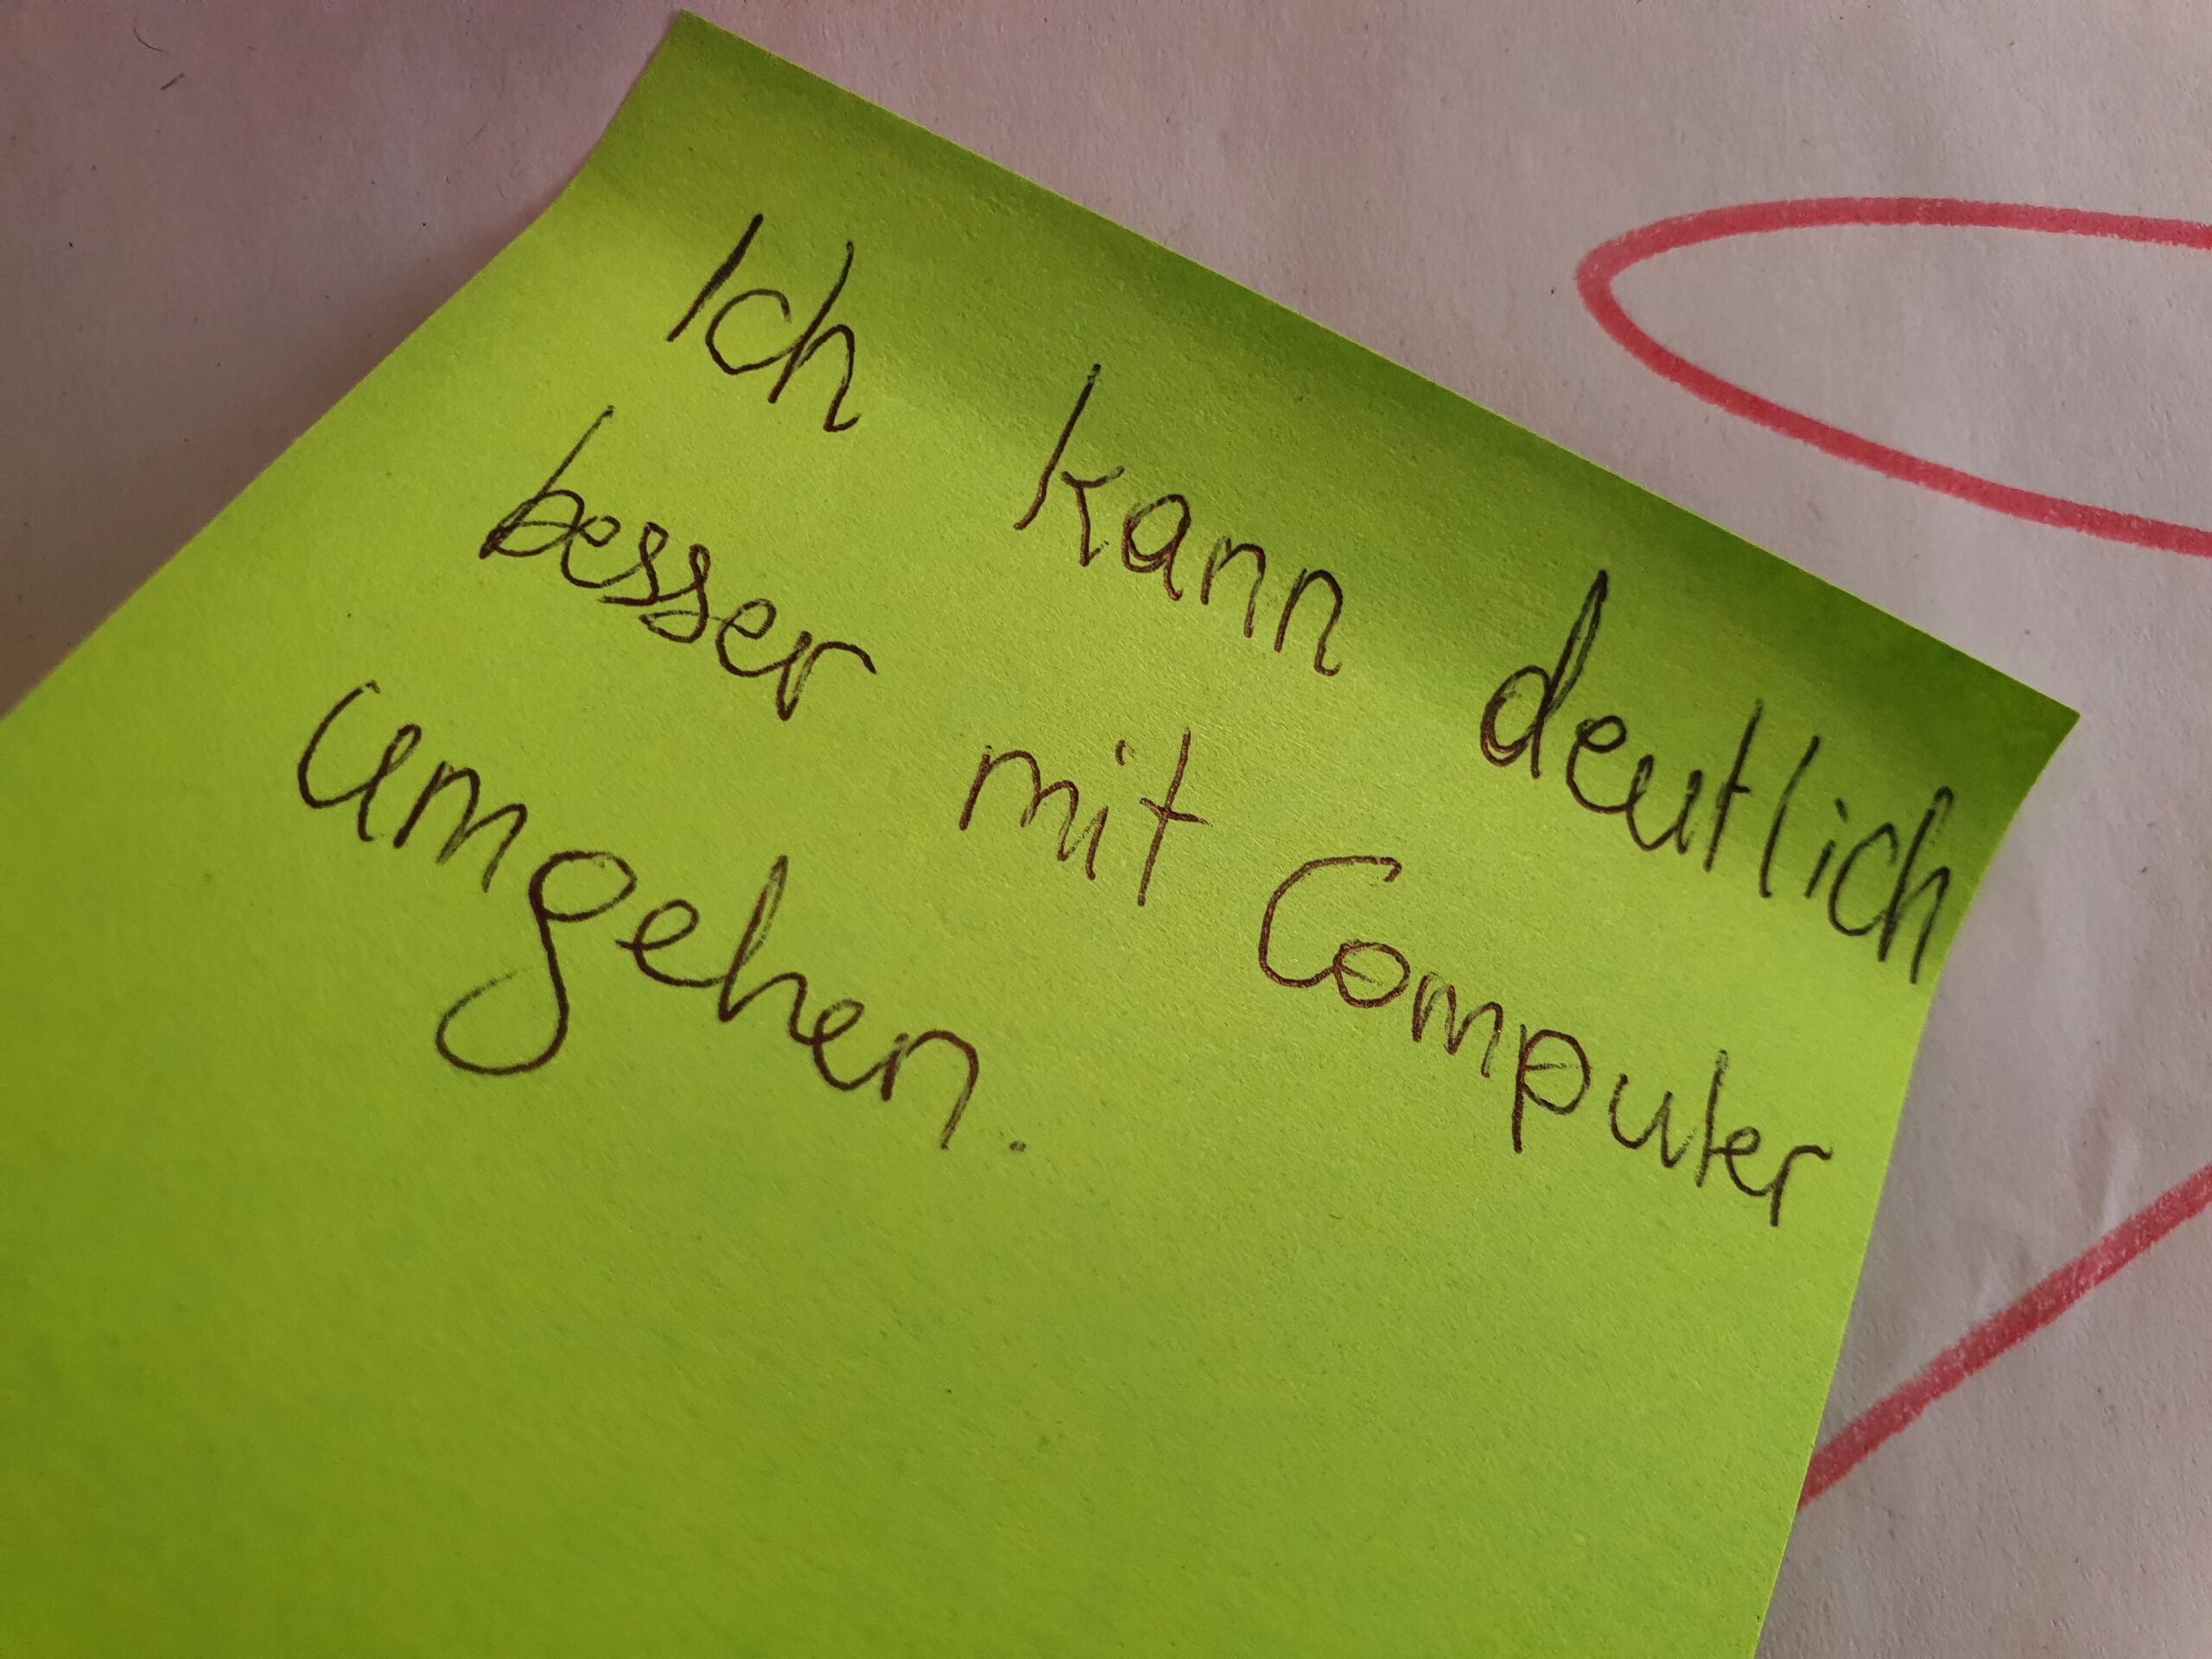 Ich kann deutlich
besser mit Computer
umgehen.